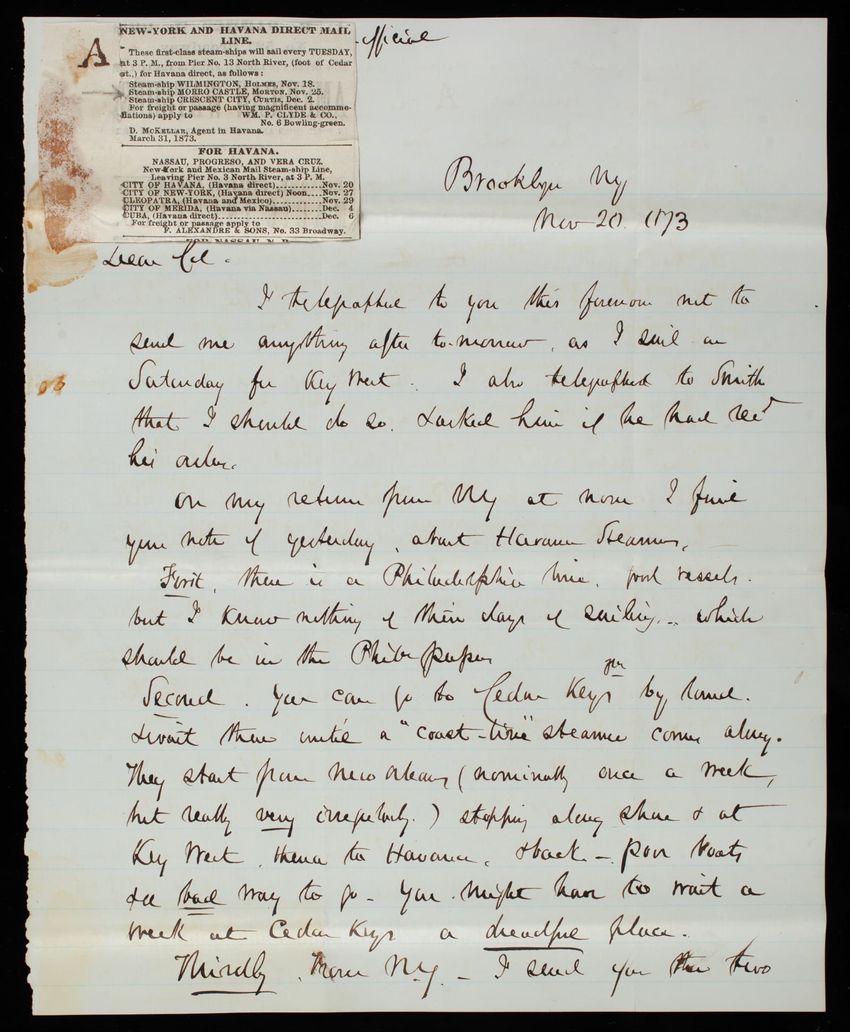 A
NEW-YORK AND HAVANA DIRECT MAIL
LINE.
These first-class steam-ships will sail every TUESDAY,
at 3 P. M., from Pier No. 13 North River, (foot of Cedar
st.,) for Havana direct, as follows:
Steam-ship WILMINGTON, HOLMES, Nov. 18.
Steam-ship MORRO CASTLE, MORTON, Nov. 25.
Steam-ship CRESCENT CITY, CURTIS, Dec. 2.
For freight or passage (having magnificent accommo-
dations) apply to WM. P. CLYDE & CO.,
No. 6 Bowling-green.
D. MCKELLAR, Agent in Havana.
March 31, 1873.
FOR HAVANA.
NASSAU, PROGRESO, AND VERA CRUZ.
New-York and Mexican Mail Steam-ship Line,
Leaving Pier No. 3 North River, at 3 P. M.
CITY OF HAVANA, (Havana direct)..........Nov. 20
CITY OF NEW-YORK, (Havana direct) Noon....Nov. 27
CLEOPATRA, (Havana and Mexico)..........Nov. 29
CITY OF MERIDA, (Havana via Nassau)......Dec. 4
CUBA, (Havana direct)....................Dec. 6
For freight or passage apply to
F. ALEXANDRE & SONS, No. 33 Broadway.
official
Brooklyn Ny
Nov 20. 1873
Dear Col.
I telegraphed to you this forenoon not to
send me anything after to-morrow, as I sail on
Saturday for Key West. I also telegraphed to Smith
that I should do so. & asked him if he had recd
his orders.
On my return from NY at noon I find
your note of yesterday, about Havana Steamers,
First, there is a Philadelphia line, good vessels.
but I know nothing of their days of sailing - which
should be in the Phila papers
Second. You can go to Cedar Keys by land.
& wait there until a "coast-line" steamer comes along.
They start from New Orleans (nominally once a week,
but really very irregularly.) stopping along shore & at
Key West, thence to Havana, & back - poor boats
& a bad way to go - You might have to wait a
week at Cedar Keys a dreadful place.
Thirdly. From N.Y. - I send you the two